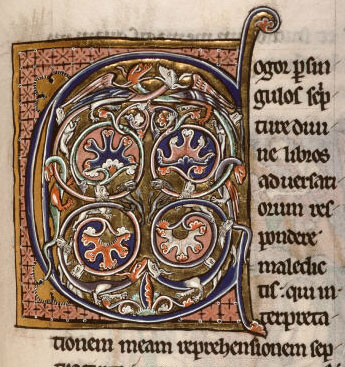 Cogor ꝑ sin
gulos scp
ture diui
ne libros
aduersari
orum res
pondere
maledic
tis: qui in
terpreta
tionem meam reprehensionem sep